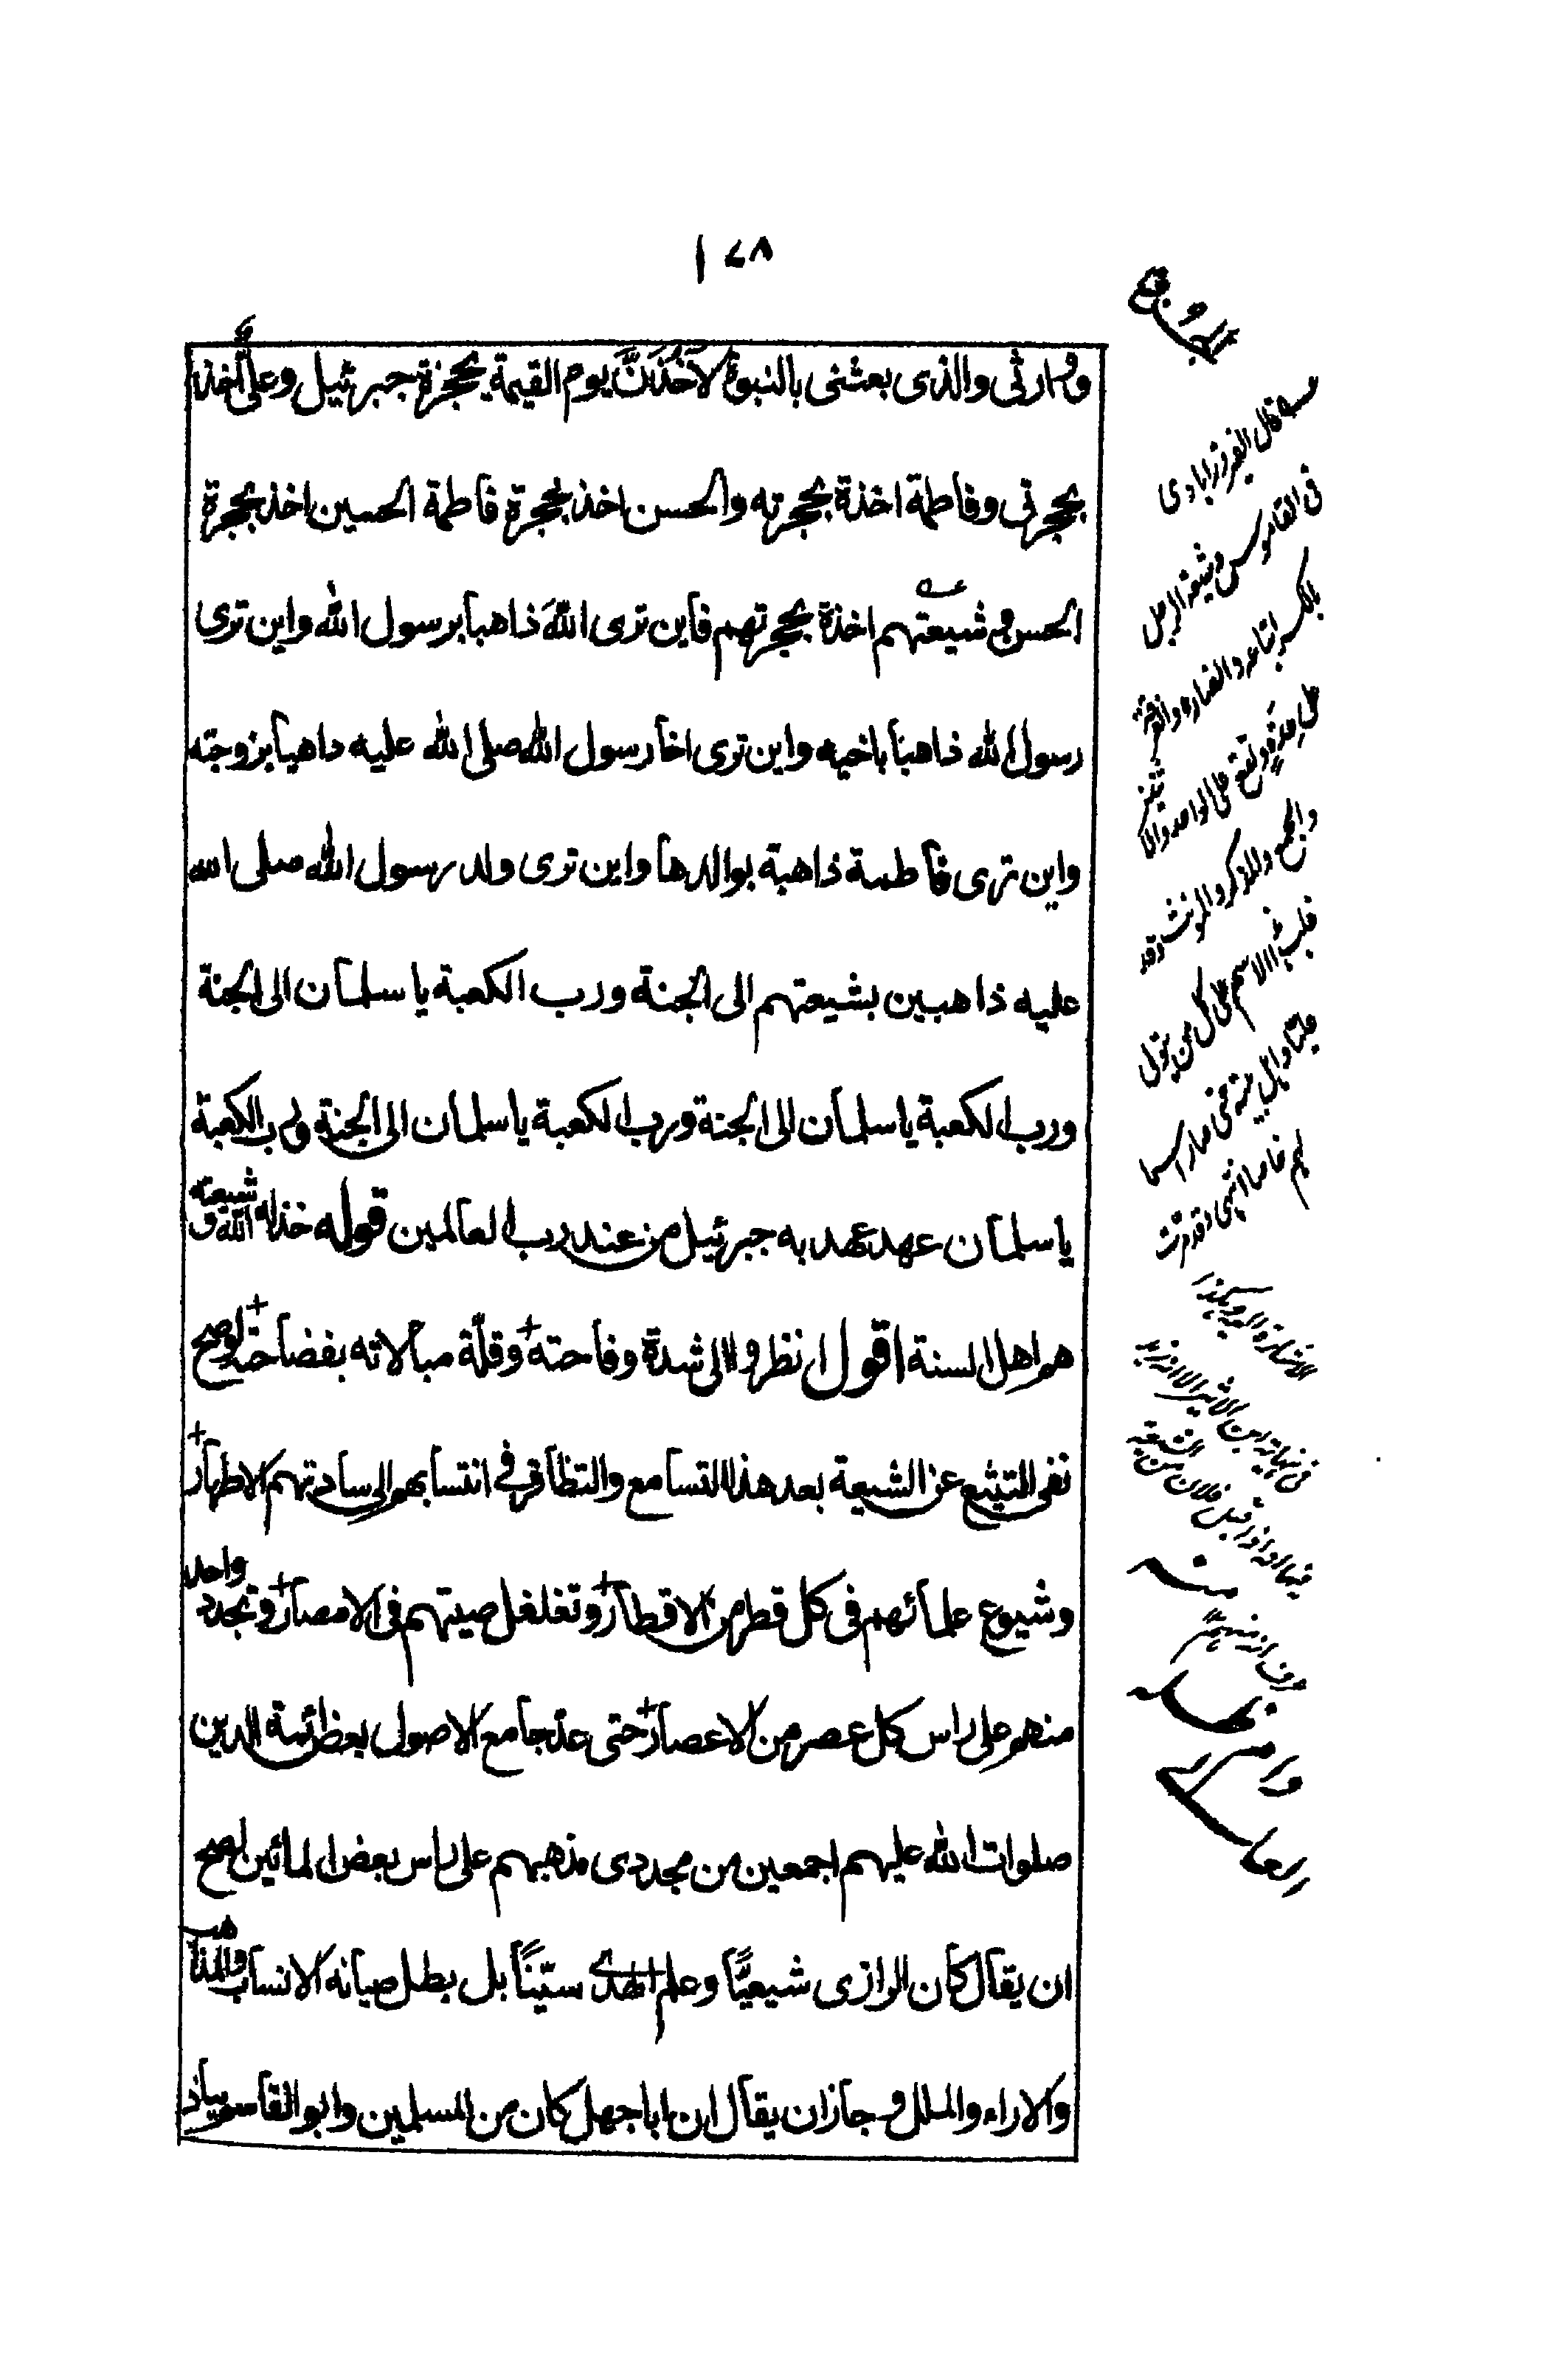 ١٧٨
ووارثی والذی بعثنی بالنبوة لآخُذَنَّ یوم القیمة بحجزة جبرئیل وعلیٌّ اخذ
بحجزتی وفاطمة اخذة بحجزته والحسن اخذ بحجزة فاطمة الحسین اخذ بحجزة
الحسن و شیعتهم اخذة بحجزتهم فاین تری اللّٰهَ ذاهبا برسول اللّٰه واین تری
رسول اللّٰه ذاهبا باخیه واین تری اخا رسول اللّٰه صلی اللّٰه علیه ذاهبا بزوجته
واین تری فاطمة ذاهبة بوالدها واین تری ولد رسول اللّٰه صلی الله
علیه ذاهبین بشیعتهم الی الجنة ورب الکعبة یا سلمان الی الجنة
ورب الکعبة یا سلمان الی الجنة ورب الکعبة یا سلمان الی الجنة ورب الکعبة
یا سلمان عهد عهد به جبرئیل من عند رب العالمین قوله خذله اللّٰه و شیعته
هم اهل السنة اقول انظروا الی شدة وقاحته وقلّة مبالاته بفضاحته لو صح
نفی التشیع عن الشیعة بعد هذا التسامع والتظافر فی انتسابهم الی ساداتهم الاطهار
وشیوع علمائهم فی کل قطر من الاقطار وتغلغل صیتهم فی الامصار وتجدد واحد
منهم علی راس کل عصر من الاعصار حتی عدّ جامع الاصول بعض ائمة الدین
صلوات اللّٰه علیهم اجمعین من مجددی مذهبهم علی راس بعض المائین لصح
ان یقال کان الرازی شیعیًّا وعلم الهدی سنّیًا بل بطل صیانة الانساب والمذاهب
والاراء والملل و جاز ان یقال ان ابا جهل کان من المسلمین وابو القاسم
قال الفیروزابادی
فی القاموس وشیعة الرجل
بالکسر اتباعه وانصاره والفرقة
علی حدةٍ ویقع علی الواحد والاثنین
والجمع والمذکر والمونث وقد
غلب هذا الاسم علی کل من یتولی
علیًا واهل بیته حتی صار اسما
لهم خاصا انتهی وقد مرت
الاشارة الیه وهکذا
فی نهایة ابن الاثیر الا انه زید
فیها انه اذا قیل فلان من الشیعة
عرف انه منهم